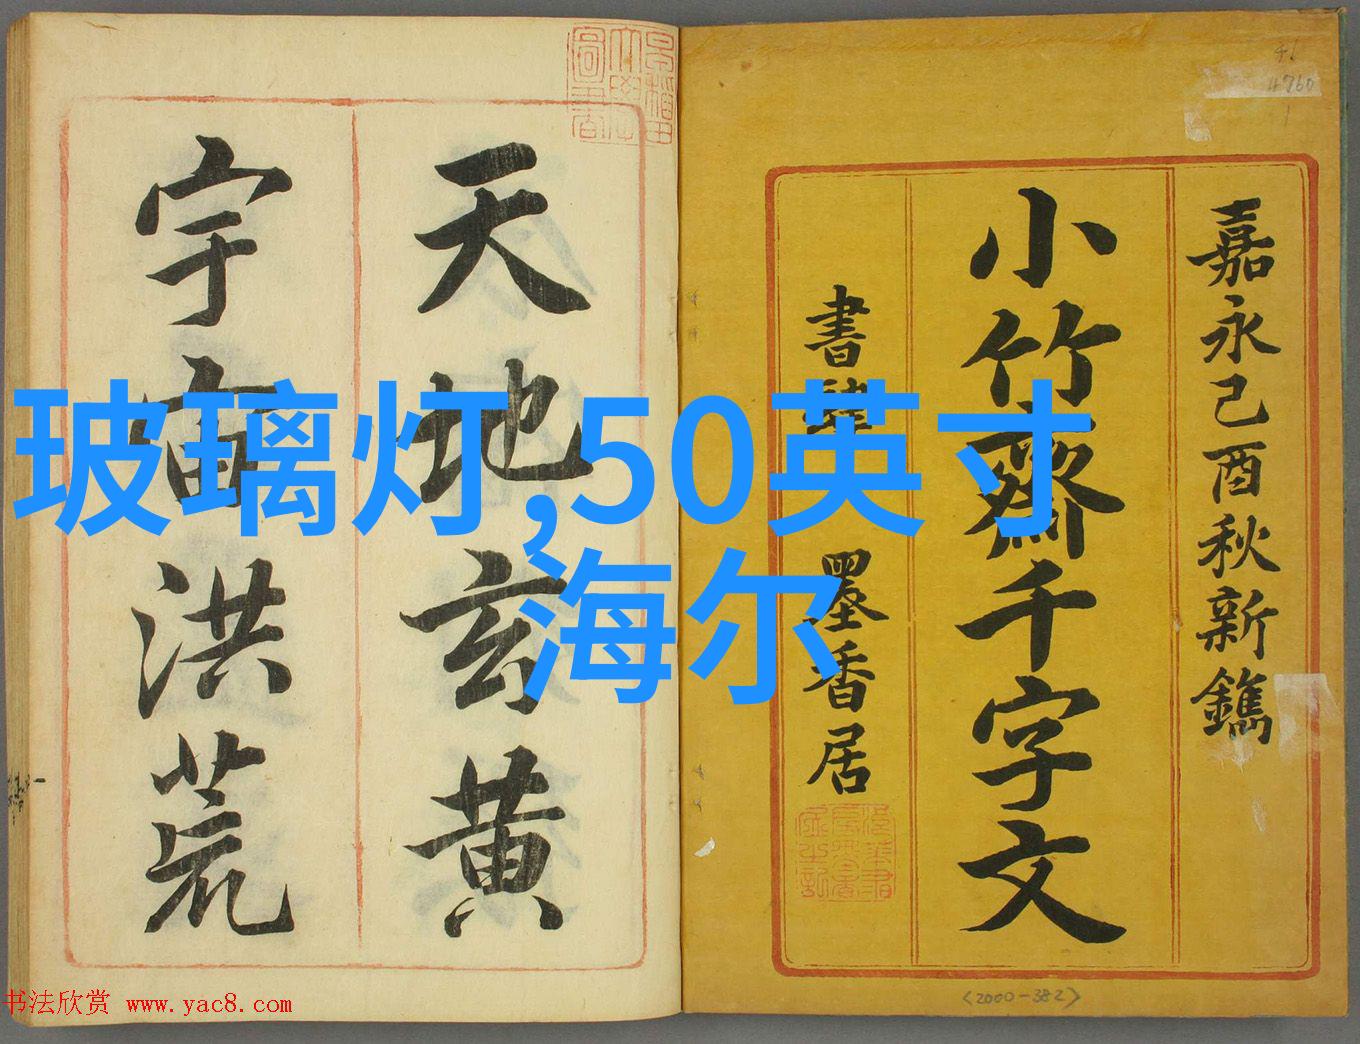 玻璃灯,50英寸
海尔
嘉永己酉秋新鐫
小竹齋千字文
書肆 墨香居
天地玄黄
宇宙洪荒
46
4760
1
<2000-382>
书法欣赏 www.yac8.com